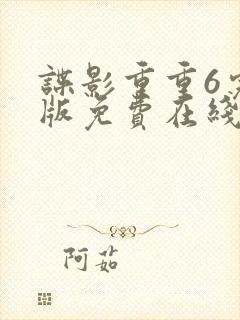 諜影重重6
版免費在綫
阿茹